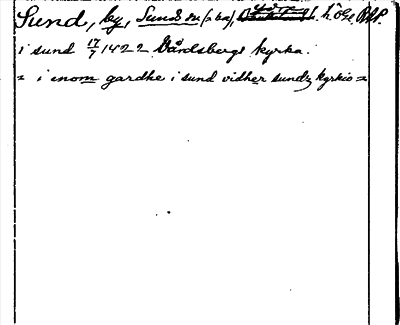 Sund, by, Sunds sn
i sund 17/7 1422 Gårdsbergs kyrka.
= i enom gardhe i sund vidher sundz kyrkio =